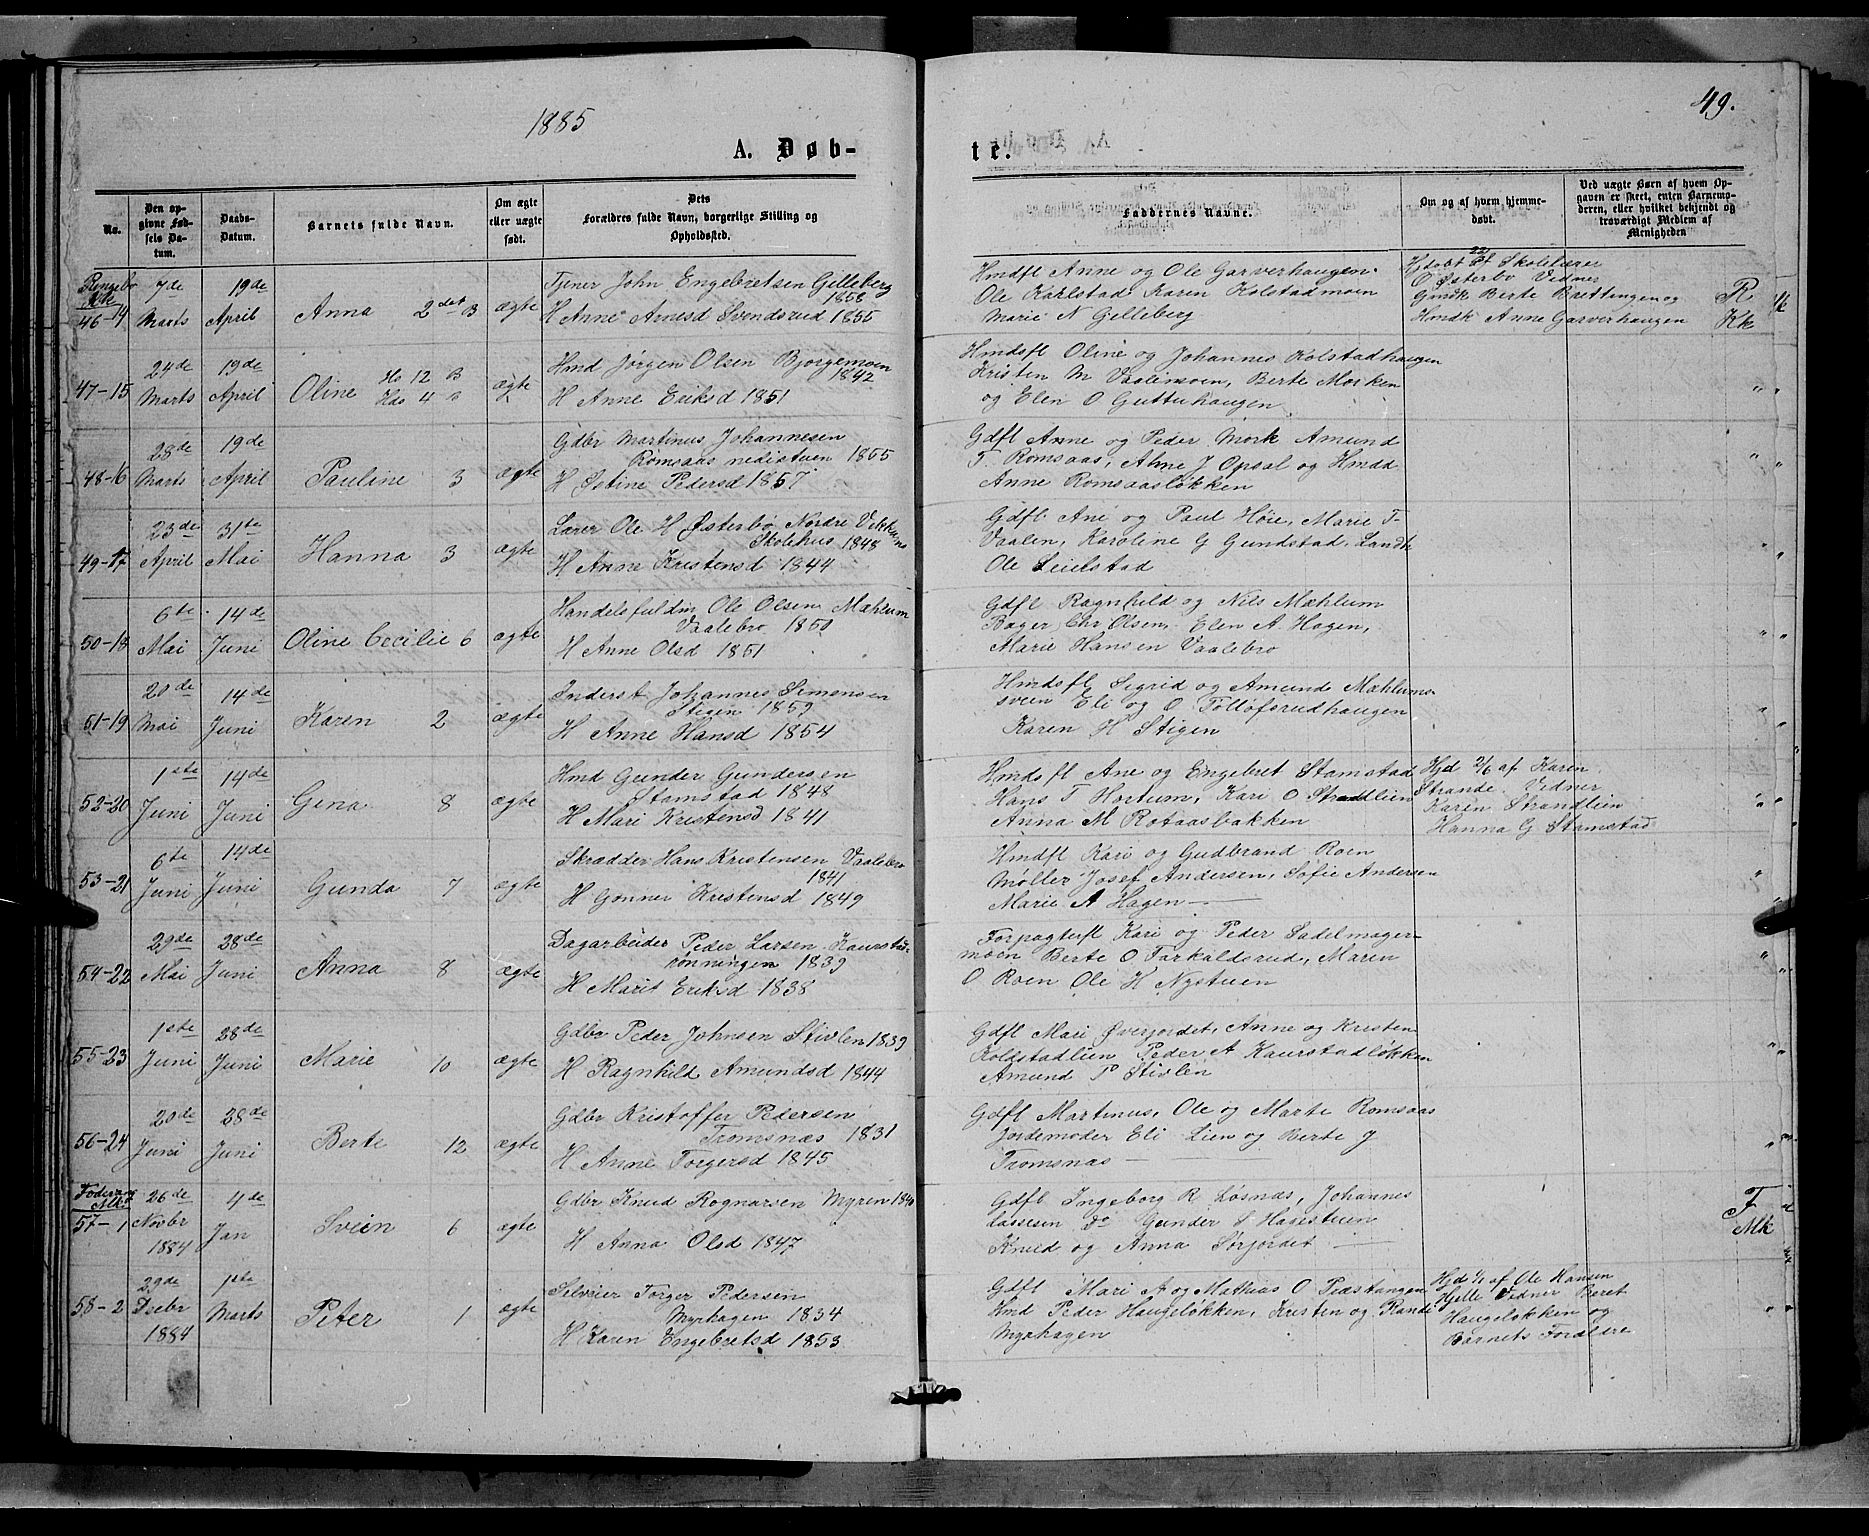 1885
49.
A. Døb-
te.
No.
Den op-
givne Fød-
sels Da-
tum.
Daabs-
Datum.
Barnets fulde Navn.
Om ægte
eller uægte
født.
Dets
Forældres fulde Navn, borgerlige Stilling og
Opholdssted.
Faddernes Navne.
Om og af hvem hjemme-
døbt.
Ved uægte Børn af hvem Op-
gaven er skeet, enten Barnemo-
deren, eller hvilket bekjendt og
troværdigt Medlem af
Menigheden
Ringebo
46-14
7de
Marts
19de
April
Anna 2det B
ægte
Tjener John Engebretsen Gilleberg
1858
H Anne Arnesd Svendsrud 1855
Hmdfl Anne og Ole Garverhaugen.
Ole Karlstad Karen Kolstadmoen
Marie N Gelleberg
Hjdøbt Skolelærer
O Østerbø Vidner
Gmdk Berte Brettingen og
Hmdk Anne Garverhaugen
R
Kk
47-15
24de
Marts
19de
April
Oline Ho 12 B
Hds 4 B
ægte
Hmd Jørgen Olsen Bjorgemoen
1842
H Anne Eriksd 1851
Hmdsfl Oline og Johannes Kolstadhaugen
Kristen M Vaalimoen, Berte Morken
og Elen O Guttuhaugen
48-16
28de
Marts
19de
April
Pauline 3
ægte
Gdbr Martinus Johannesen
Romsaas nedistuen 1855
H Østine Pedersd 1857
Gdfl Anne og Peder Mork Amund
T. Romsaas, Anne J Opsal og Hmdd
Anne Romsaasløkken
49-17
23de
April
31te
Mai
Hanna 3
ægte
Lærer Ole H Østerbø Nordre Vekkums
Skolehus 1848
H Anne Kristensd 1844
Gdfl. Ane og Paul Høie, Marie T.
Vaalen, Karoline G Gundstad, Landh
Ole Leielstad
50-18
6te
Mai
14de
Juni
Oline Cecilie 6
ægte
Handelsfuldm Ole Olsen Mæhlum
Vaalebro 1850
H Anne Olsd 1851
Gdfl Ragnhild og Nils Mæhlum
Bager Chr Olsen, Elen A Hagen,
Marie Hansen Vaalebro
51-19
20de
Mai
14de
Juni
Karen 2
ægte
Inderst Johannes Simensen
Stigen 1859
H Anne Hansd 1854
Hmdsfl Sigrid og Amund Mæhlums-
sveen Eli og O Tolloforudhaugen
Karen H Stigen
52-20
1ste
Juni
14de
Juni
Gina 8
ægte
Hmd Gunder Gundersen
Stamstad 1848
H Mari Kristensd 1841
Hmdsfl Ane og Engebret Stamstad
Hans T Hortum, Kari O Strandlien
Anna M Rotaasbakken
Hjd 2/6 af Karen
Strande. Vidner
Karen Strandlien
Hanna G Stamstad
53-21
6te
Juni
14de
Juni
Gunda 7
ægte
Skrædder Hans Kristensen Vaalebro
1841
H Gonner Kristensd 1849
Hmdfl Kari og Gudbrand Roen
Møller Josef Andersen, Sofie Andersen
Marie A Hagen
54-22
29de
Mai
28de
Juni
Anna 8
ægte
Dagarbeider Peder Larsen Kaurstad-
rønningen 1839
H Marit Eriksd 1838
Forpagterfl Kari og Peder Sadelmager-
moen Berte O Torkaldsrud, Maren
O Roen Ole H Nystuen
55-23
1ste
Juni
28de
Juni
Marie 10
ægte
Gdbr Peder Johnsen Stivlen 1839
H Ragnhild Amundsd 1844
Gdfl Mari Øverjordet, Anne og Kristen
Koldstadlien Peder A Kaurstadløkken
Amund P Stivlen
56-24
20de
Juni
28de
Juni
Berte 12
ægte
Gdbr Kristoffer Pedersen
Tromsnæs 1831
H Anne Torgersd 1845
Gdfl Martinus, Ole og Marte Romsaas
Jordemoder Eli Lien og Berte J
Tromsnæs
57-1
26de
Novbr
1884
4de
Jan
Svein 6
ægte
Gdbr Knud Rognarsen Myren 1840
H Anna Olsd 1847
Gdfl Ingeborg R Løsnæs, Johannes
Lassesen Do Gunder S Havestuen
Knud og Anna Sørjordet
F
Mk
58-2
29de
Dsebr
1884
1ste
Marts
Peter 1
ægte
Selveier Torger Pedersen
Myrhagen 1834
H Karen Engebretsd 1853
Gdfl Mari A og Mathias O Pedstangen
Hmd Peder Haugeløkken, Kristen og Randi
Myrhagen
Hjd 1/1 af Ole Hansen
Hjelle Vidner Beret
Haugeløkken og
Barnets Forældre